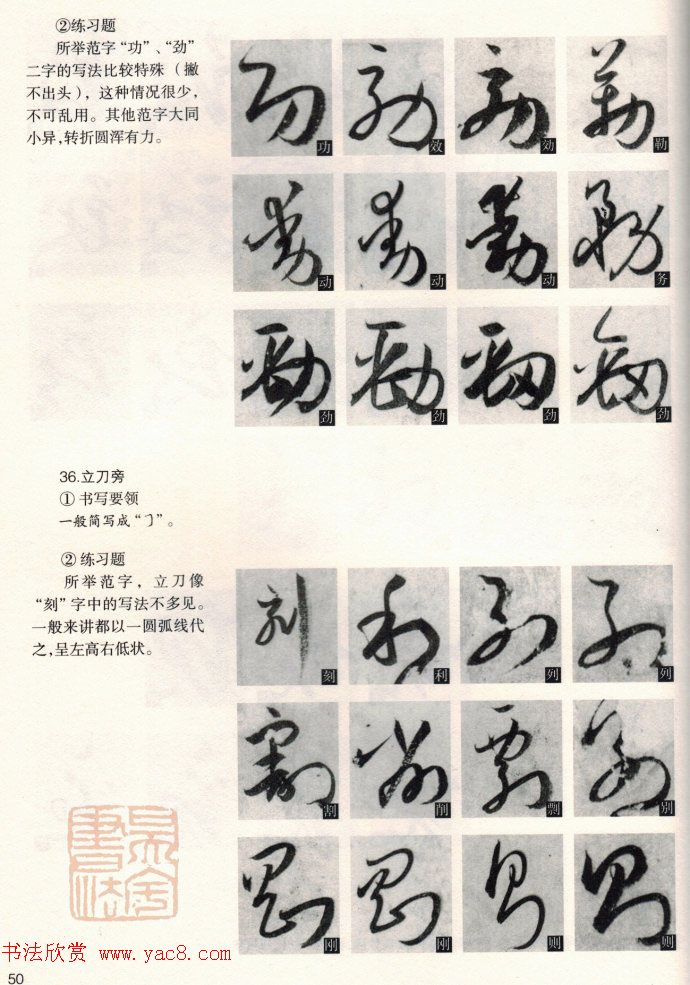 ②练习题
所举范字“功”、“劲”
二字的写法比较特殊（撇
不出头），这种情况很少，
不可乱用。其他范字大同
小异，转折圆浑有力。
功 效 効 勒
动 动 动 务
劲 劲 劲 劲
36.立刀旁
①书写要领
一般简写成“㇆”。
②练习题
所举范字，立刀像
“刻”字中的写法不多见。
一般来讲都以一圆弧线代
之，呈左高右低状。
刻 利 列 列
割 削 剽 别
刚 刚 则 则
书法欣赏 www.yac8.com
50